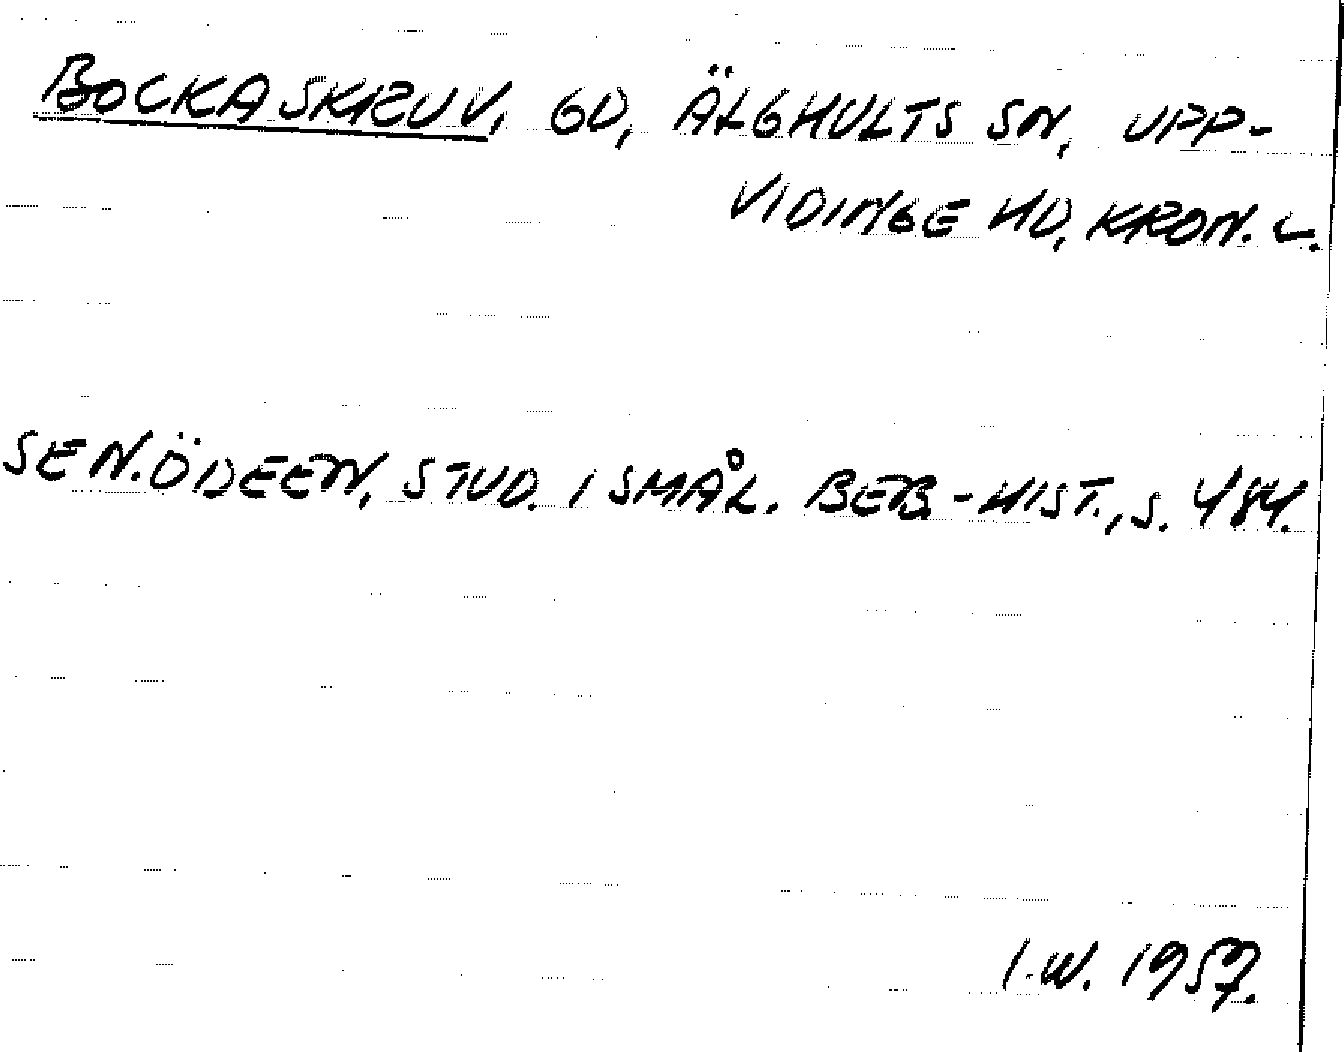 BOCKASKRUV, GD, ÄLGHULTS SN, UPP-
VIDINGE HD, KRON. L.
SE N. ÖDEEN, STUD. I SMÅL. BEB.-HIST., S. 484.
I.W. 1957.